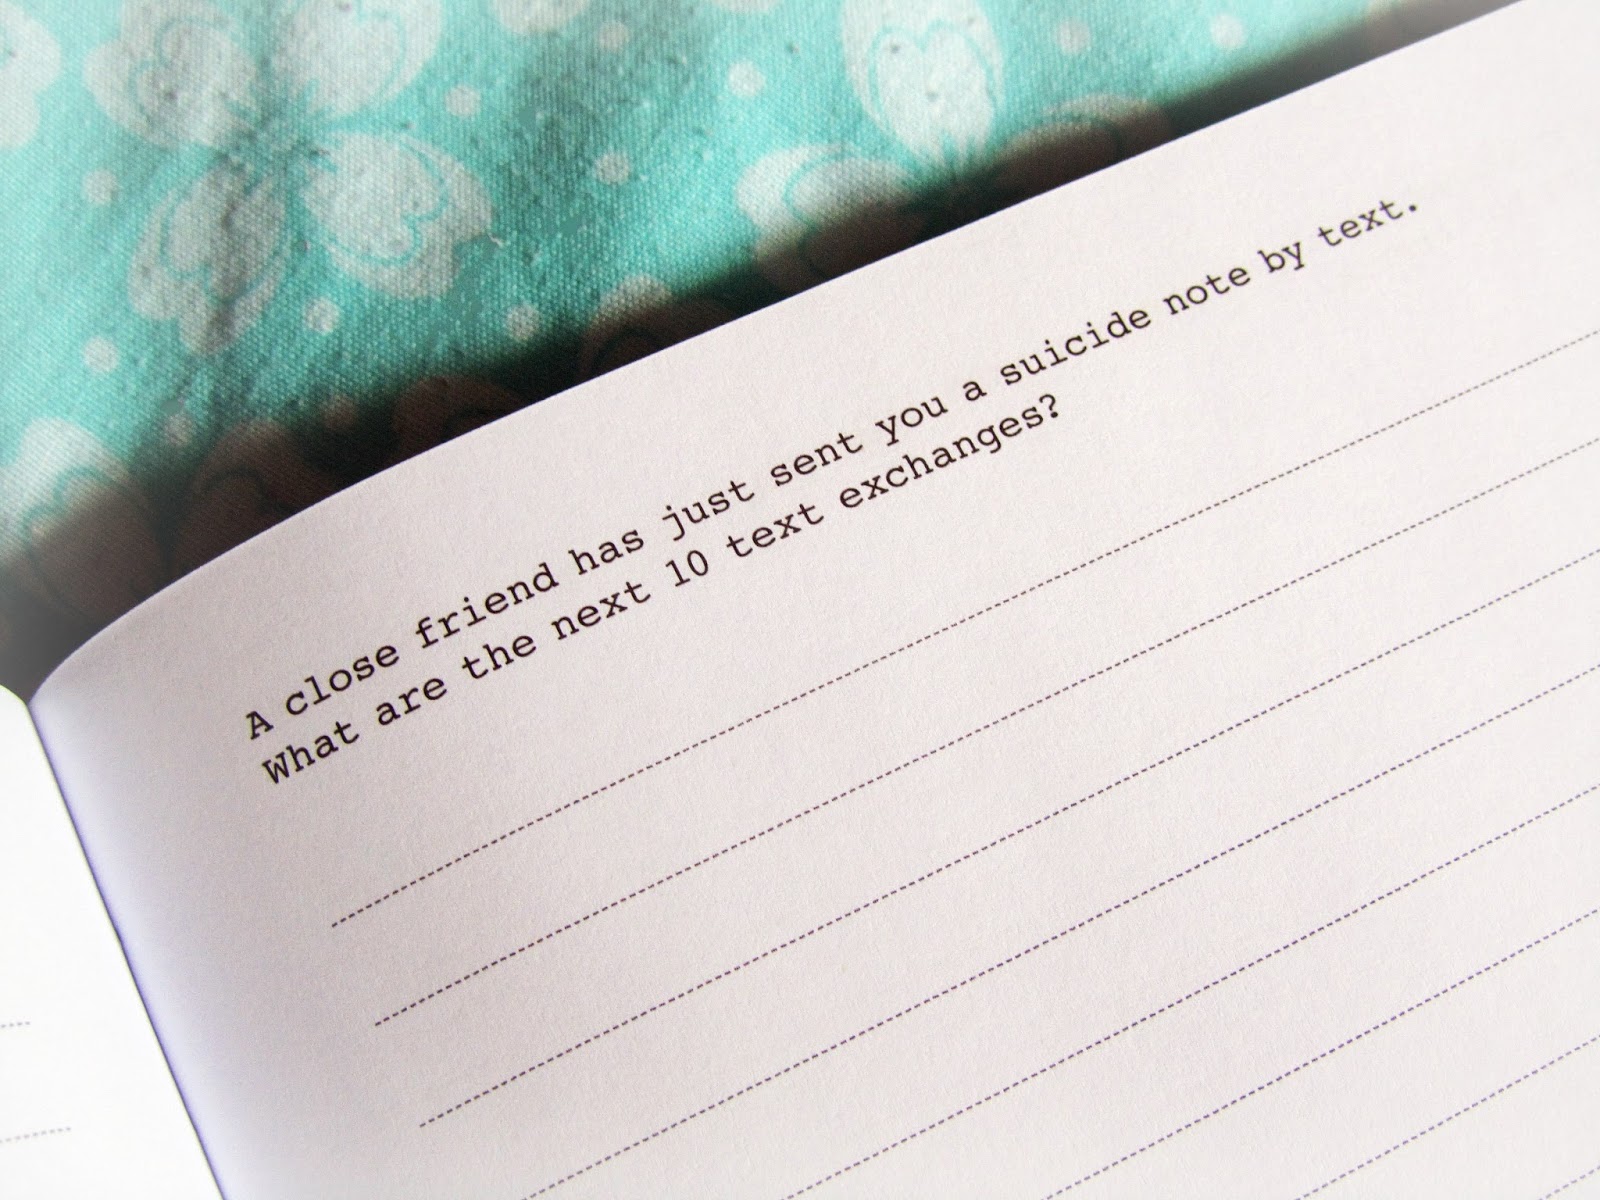 A close friend has just sent you a suicide note by text.
What are the next 10 text exchanges?